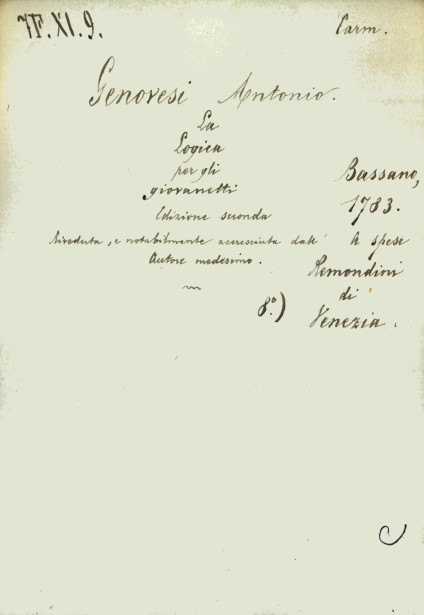 7F.XI.9.
Carm.
Genovesi Antonio.
La
Logica
per gli
giovanetti
Edizione seconda
Riveduta, e notabilmente accresciuta dall'
Autore medesimo.
8°.)
Bassano,
1783.
A spese
Remondini
di
Venezia.